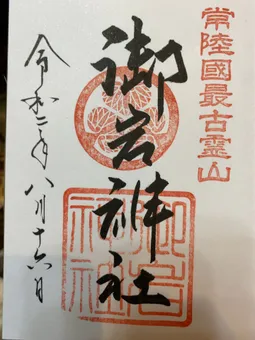 常陸國最古霊山
御岩神社
令和二年八月十六日
御岩神社